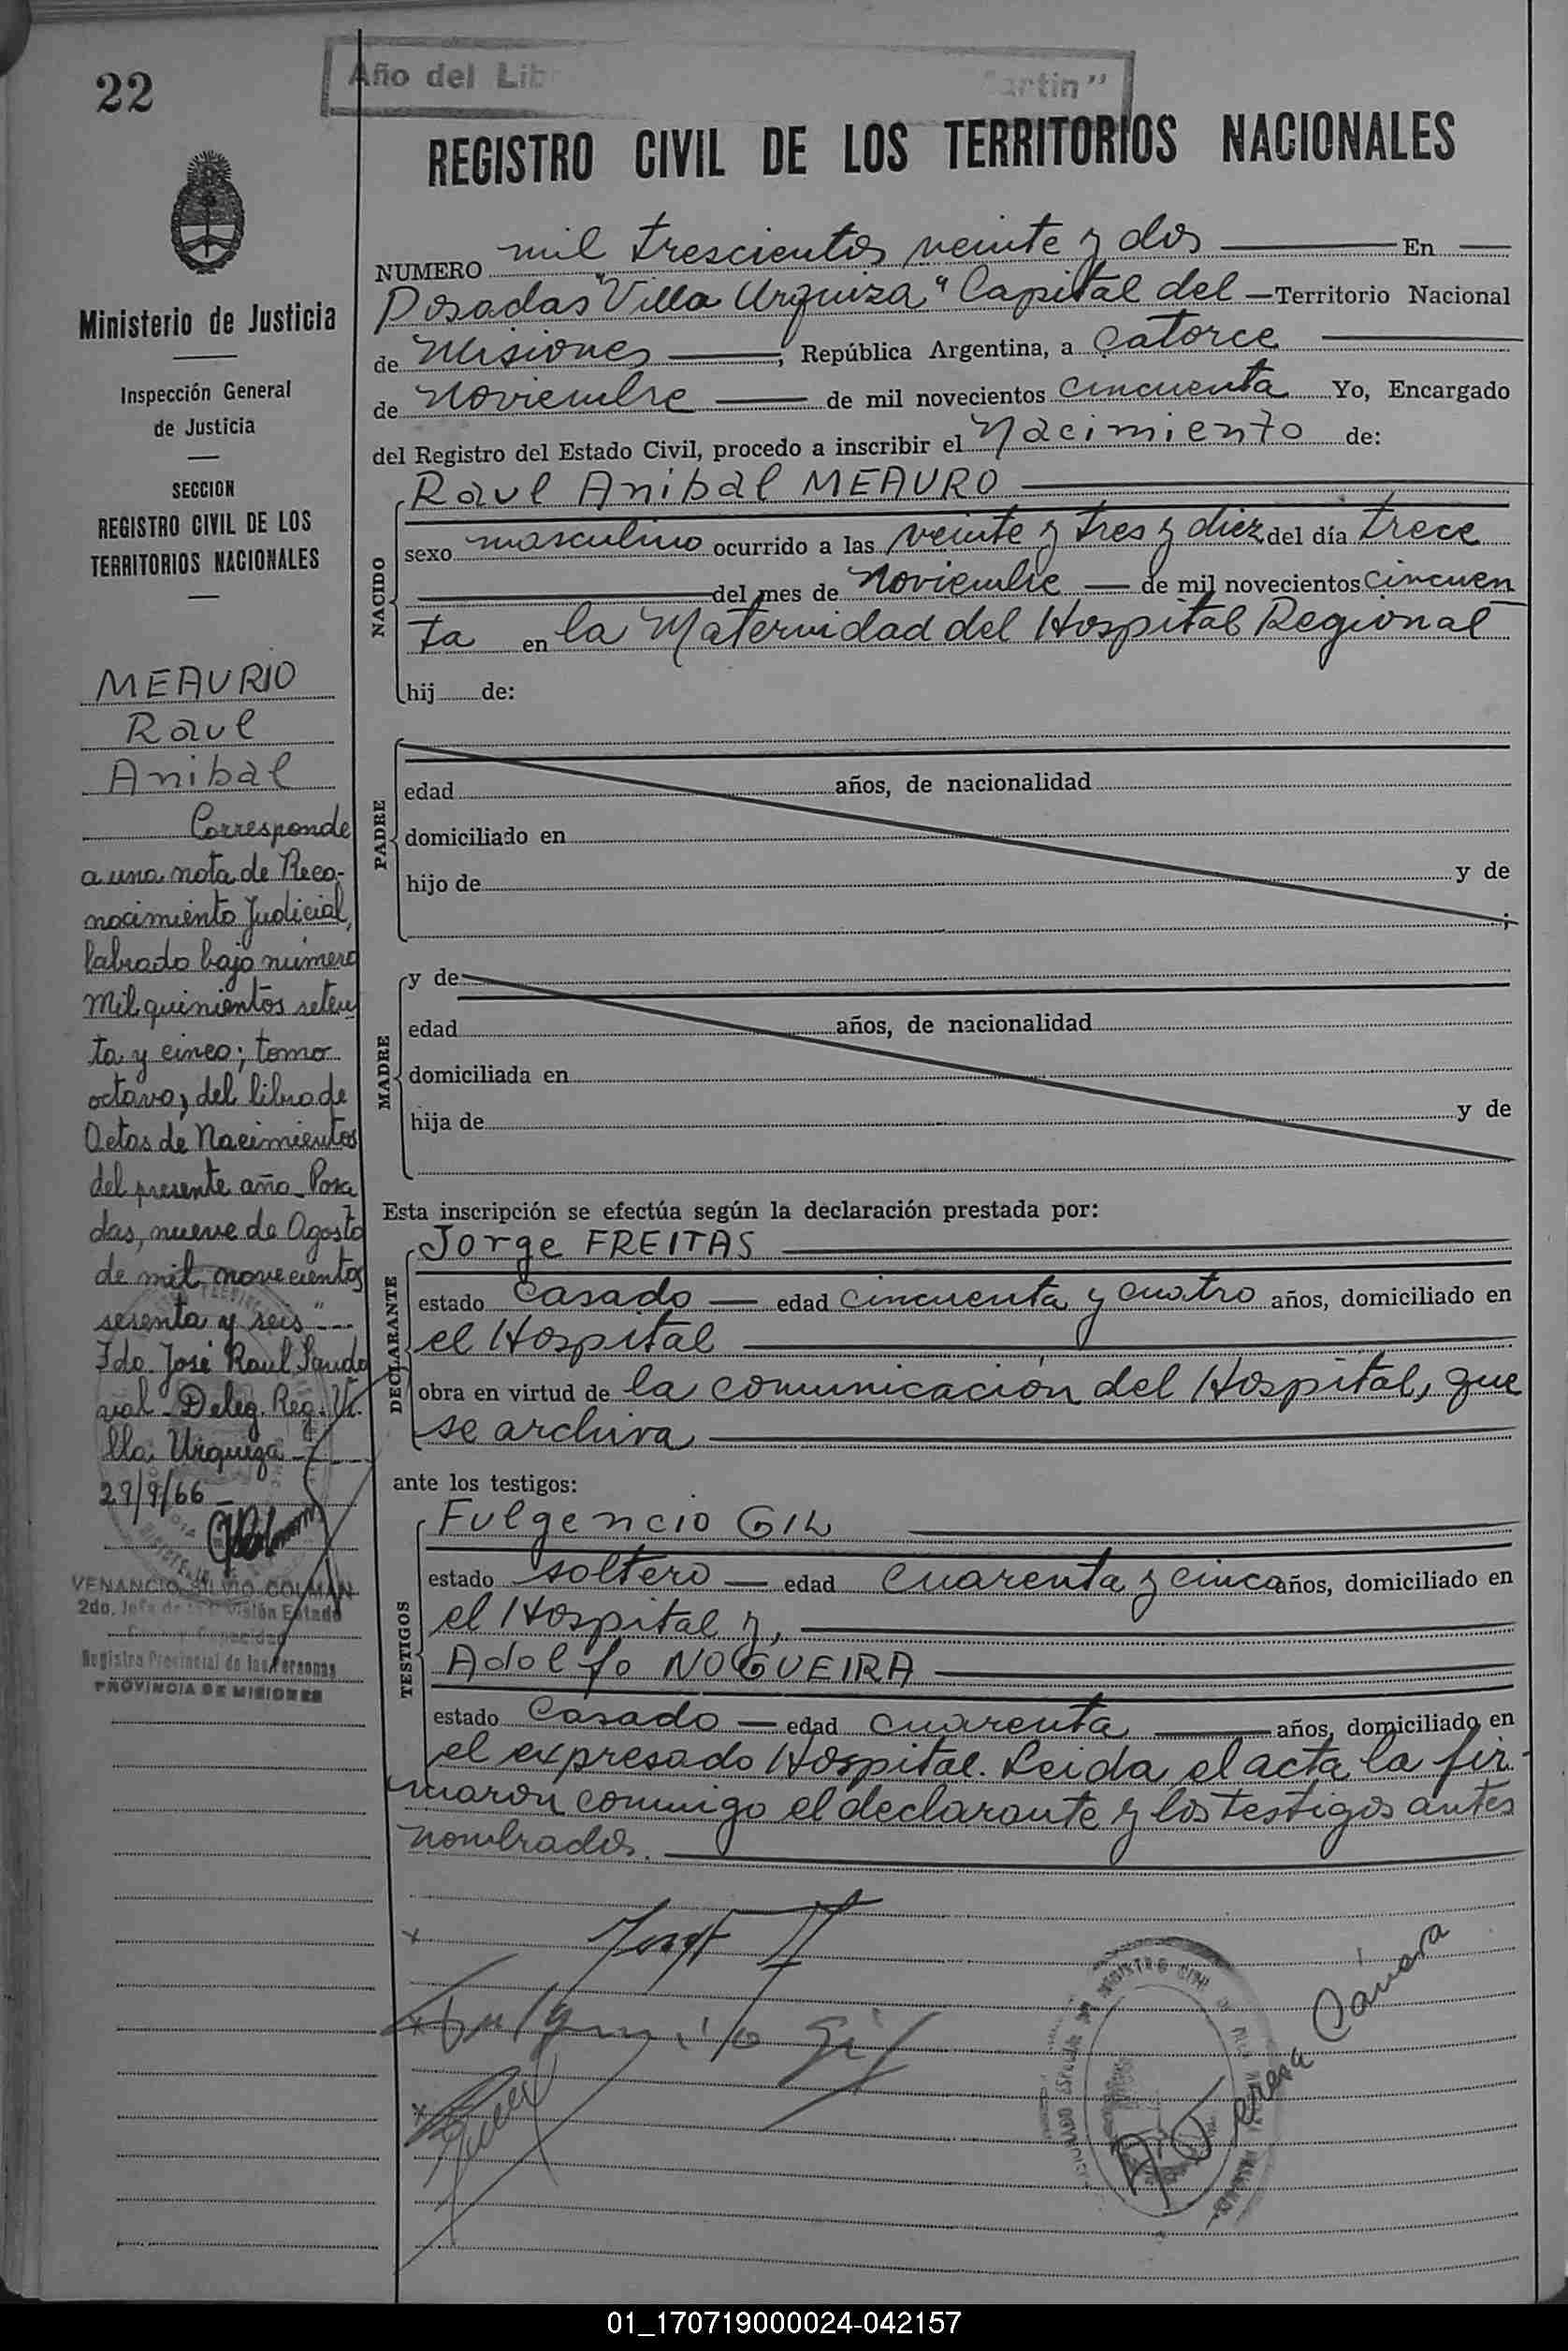 22
Año del Lib
artin"
REGISTRO CIVIL DE LOS TERRITORIOS NACIONALES
NUMERO mil trescientos veinte y dos En
Posadas "Villa Urquiza" Capital del Territorio Nacional
de Misiones, República Argentina, a catorce
de Noviembre de mil novecientos cincuenta Yo, Encargado
del Registro del Estado Civil, procedo a inscribir el Nacimiento de:
NACIDO
Raul Anibal MEAURO
sexo masculino ocurrido a las veinte y tres y diez del día trece
del mes de Noviembre de mil novecientos cincuen
ta en la Maternidad del Hospital Regional
hij de:
PADRE
edad años, de nacionalidad
domiciliado en
hijo de y de
;
MADRE
y de
edad años, de nacionalidad
domiciliada en
hija de y de
Esta inscripción se efectúa según la declaración prestada por:
DECLARANTE
Jorge FREITAS
estado casado edad cincuenta y cuatro años, domiciliado en
el Hospital
obra en virtud de la comunicación del Hospital, que
se archiva
ante los testigos:
TESTIGOS
Fulgencio GIL
estado soltero edad cuarenta y cinco años, domiciliado en
el Hospital y,
Adolfo NOGUEIRA
estado casado edad cuarenta años, domiciliado en
el expresado Hospital. Leida el acta la fir-
maron conmigo el declarante y los testigos antes
nombrados.
Fulgencio Gil
Teresa Cámara
Ministerio de Justicia
Inspección General
de Justicia
SECCION
REGISTRO CIVIL DE LOS
TERRITORIOS NACIONALES
MEAURIO
Raul
Anibal
Corresponde
a una nota de Reco-
nocimiento Judicial,
labrado bajo número
Mil quinientos seten
ta y cinco; tomo
octavo, del libro de
Actas de Nacimientos
del presente año_Posa
das, nueve de Agosto
de mil novecientos
sesenta y seis"---
Fdo. José Raul Sando
val_Deleg. Reg. Vi
lla Urquiza
29/9/66
VENANCIO SILVIO COLMAN
2do. Jefe de la División Estado
Civil y Capacidad
Registro Provincial de las Personas
PROVINCIA DE MISIONES
01_170719000024-042157